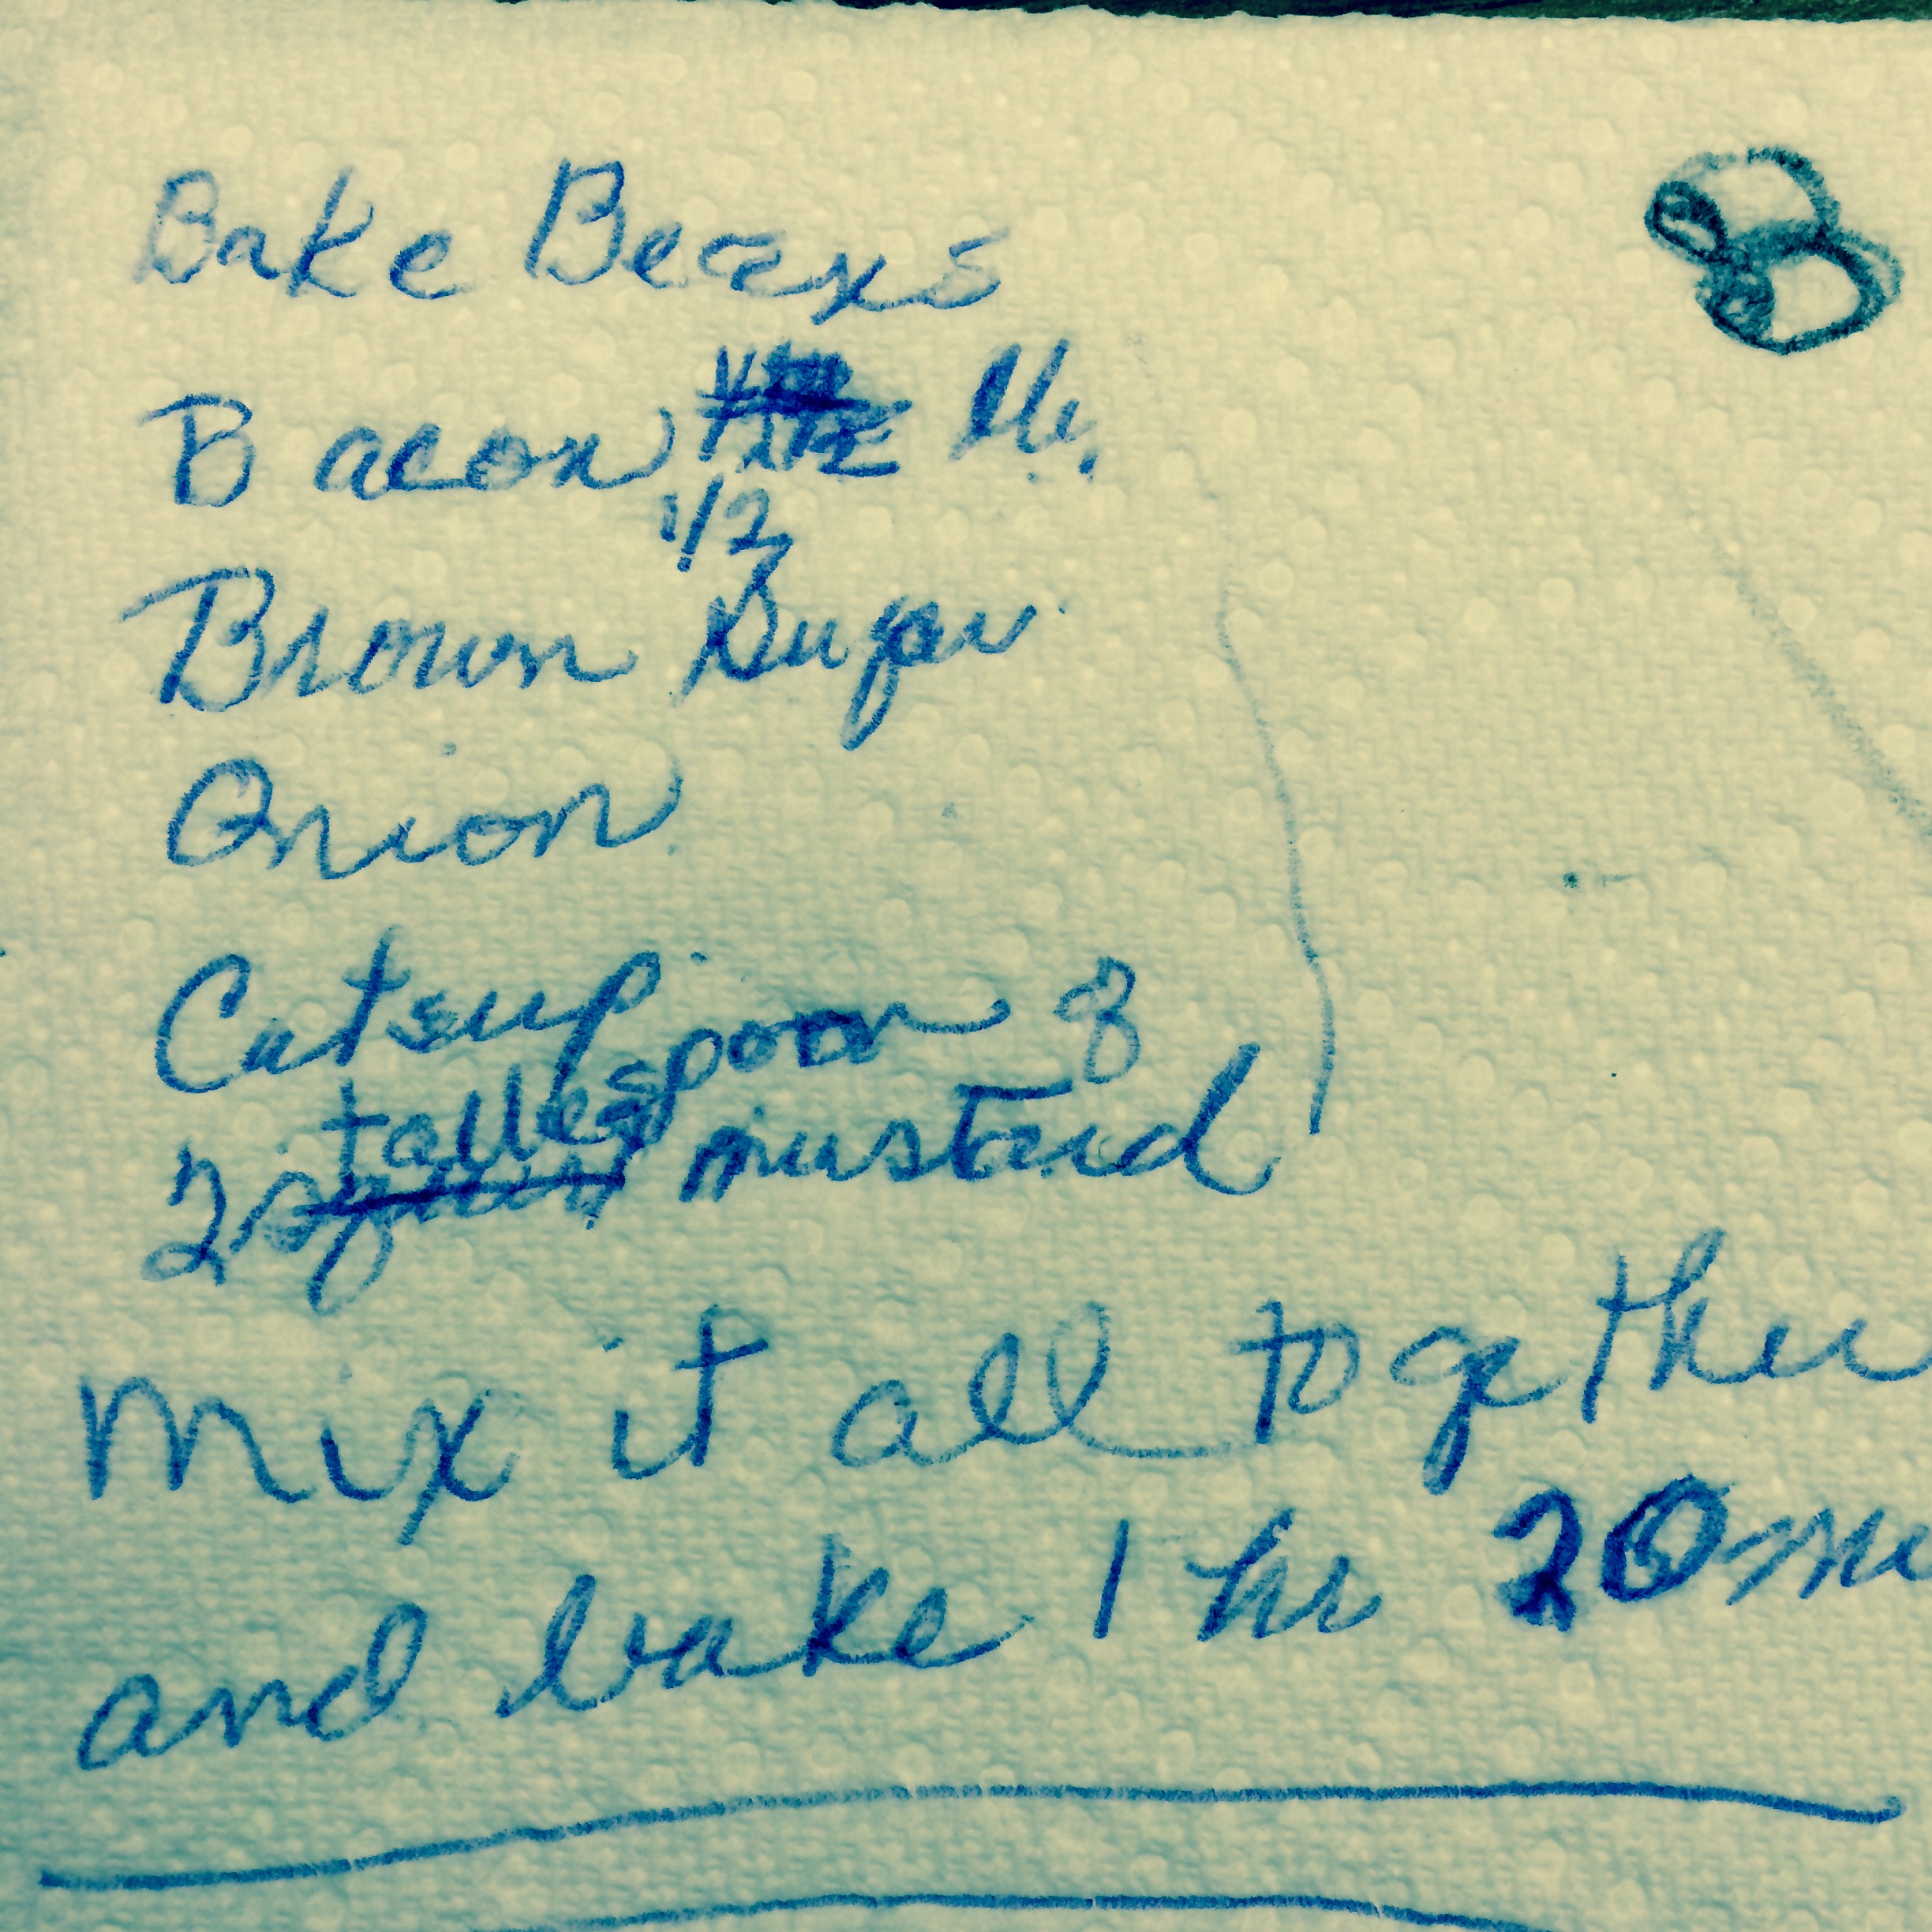 Bake Beans
Bacon lb.
1/2
Brown Sugar
Onion
Catsup
tablespoon of
2 mustard
Mix it all together
and bake 1 hr 20 mi